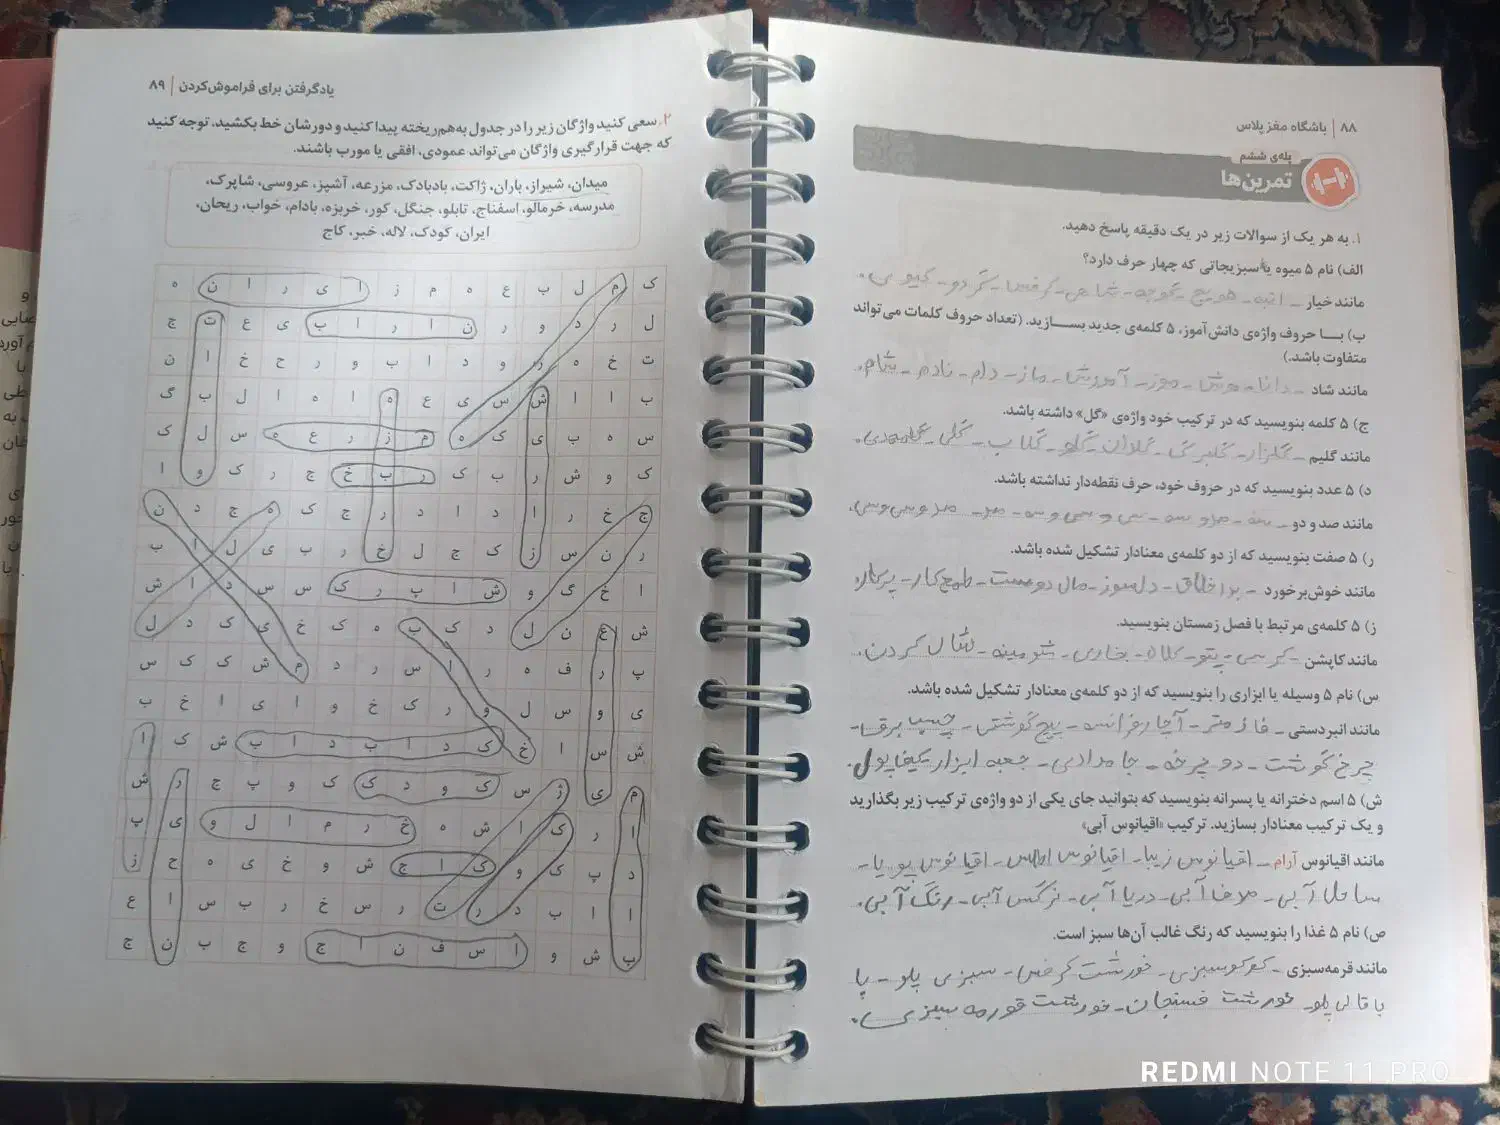 ۸۸ | باشگاه مغز پلاس
پله‌ی ششم
تمرین‌ها
۱. به هر یک از سوالات زیر در یک دقیقه پاسخ دهید.
الف) نام ۵ میوه یا سبزیجاتی که چهار حرف دارد؟
مانند خیار – انبه – هویج – گوجه – شاهی – کرفس – گردو – کیوی.
ب) بـــا حروف واژه‌ی دانش‌آموز، ۵ کلمه‌ی جدید بســـازید. (تعداد حروف کلمات می‌تواند
متفاوت باشد.)
مانند شاد – دانا – موش – موز – آموزش – ماز – دام – نادم – شام.
ج) ۵ کلمه بنویسید که در ترکیب خود واژه‌ی «گل» داشته باشد.
مانند گلیم – گلزار – گلبرگ – گلدان – گلو – گلاب – گلی –
د) ۵ عدد بنویسید که در حروف خود، حرف نقطه‌دار نداشته باشد.
مانند صد و دو – سه – صد و سه – سی و سه – صد – صد و سی و سی.
ر) ۵ صفت بنویسید که از دو کلمه‌ی معنادار تشکیل شده باشد.
مانند خوش‌برخورد – بداخلاق – دلسوز – مال دوست – طمع‌کار – پرکار.
ز) ۵ کلمه‌ی مرتبط با فصل زمستان بنویسید.
مانند کاپشن – کرسی – پتو – کلاه – بخاری – شومینه – شال گردن.
س) نام ۵ وسیله یا ابزاری را بنویسید که از دو کلمه‌ی معنادار تشکیل شده باشد.
مانند انبردستی – فازمتر – آچار فرانسه – پیچ گوشتی – چسب برق –
چرخ گوشت – دو چرخه – جامدادی – جعبه ابزار – کیف پول.
ش) ۵ اسم دخترانه یا پسرانه بنویسید که بتوانید جای یکی از دو واژه‌ی ترکیب زیر بگذارید
و یک ترکیب معنادار بسازید. ترکیب «اقیانوس آبی»
مانند اقیانوس آرام – اقیانوس زیبا – اقیانوس اطلس – اقیانوس پویا –
ساحل آبی – آبی – دریا آبی – نرگس آبی – رنگ آبی.
ص) نام ۵ غذا را بنویسید که رنگ غالب آن‌ها سبز است.
مانند قرمه‌سبزی – کوکو سبزی – خورشت کرفس – سبزی پلو – با
باقالی پلو – خورشت فسنجان – خورشت قورمه سبزی.
یادگرفتن برای فراموش‌کردن | ۸۹
۲. سعی کنید واژگان زیر را در جدول به‌هم‌ریخته پیدا کنید و دورشان خط بکشید. توجه کنید
که جهت قرارگیری واژگان می‌تواند عمودی، افقی یا مورب باشند.
میدان، شیراز، باران، ژاکت، بادبادک، مزرعه، آشپز، عروسی، شاپرک،
مدرسه، خرمالو، اسفناج، تابلو، جنگل، کور، خربزه، بادام، خواب، ریحان،
ایران، کودک، لاله، خبر، کاج
ک م ل ب ع ه م ز ا ی ر ا ن ه
ل ر د و ر ن ا ر ا ب ی ع ت ج
ت خ ه ر و د ا ب و ر ح خ ا ن
ب ا ا ش س ی ع ه ا ه ا ل ب گ
س ه ب ی ک ه م ز ر ع ه س ل ک
ک و ش ر ب ک ر ب خ ج ر ک و ا
ج خ ر ا د ا د ر ج ک ه ج د ن
ر ن س ز ک ج ل خ ر ب ی ل ا ب
ا خ گ و ش ا پ ر ک س س د ا ش
ش ع ن ل د ک ب ه ک خ ی ک د ل
پ ر ف ه ر ا س ر د م ش ک ک س
ی و س ل و ر ک خ و ا ی ا خ ب
ش س ا خ ک د ا ب د ا ب ش ک ا
م ی ژ س ک و د ک ک و پ ج ر ش
ا ر ک ا ش ه خ ر م ا ل و ی پ
د پ ک و ک ا ج ش و خ ی ه ح ز
ا ا ب د ر ت ر س خ ر ب س ا ع
ب ش و ا س ف ن ا ج و ج ب ن ج
REDMI NOTE 11 PRO